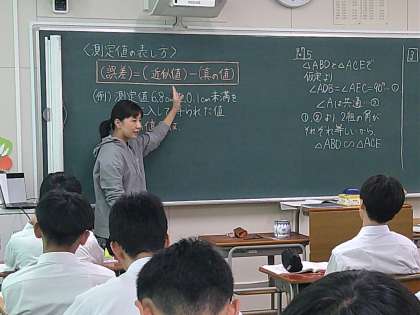 〈測定値の表し方〉
(誤差)=(近似値)-(真の値)
(例)測定値6.8cm 0.1cm未満を
入して得られた値
問5
△ABDと△ACEで
仮定より
∠ADB=∠AEC=90°…①
∠Aは共通…②
①,②より2組の角が
それぞれ等しいから、
△ABD∽△ACE